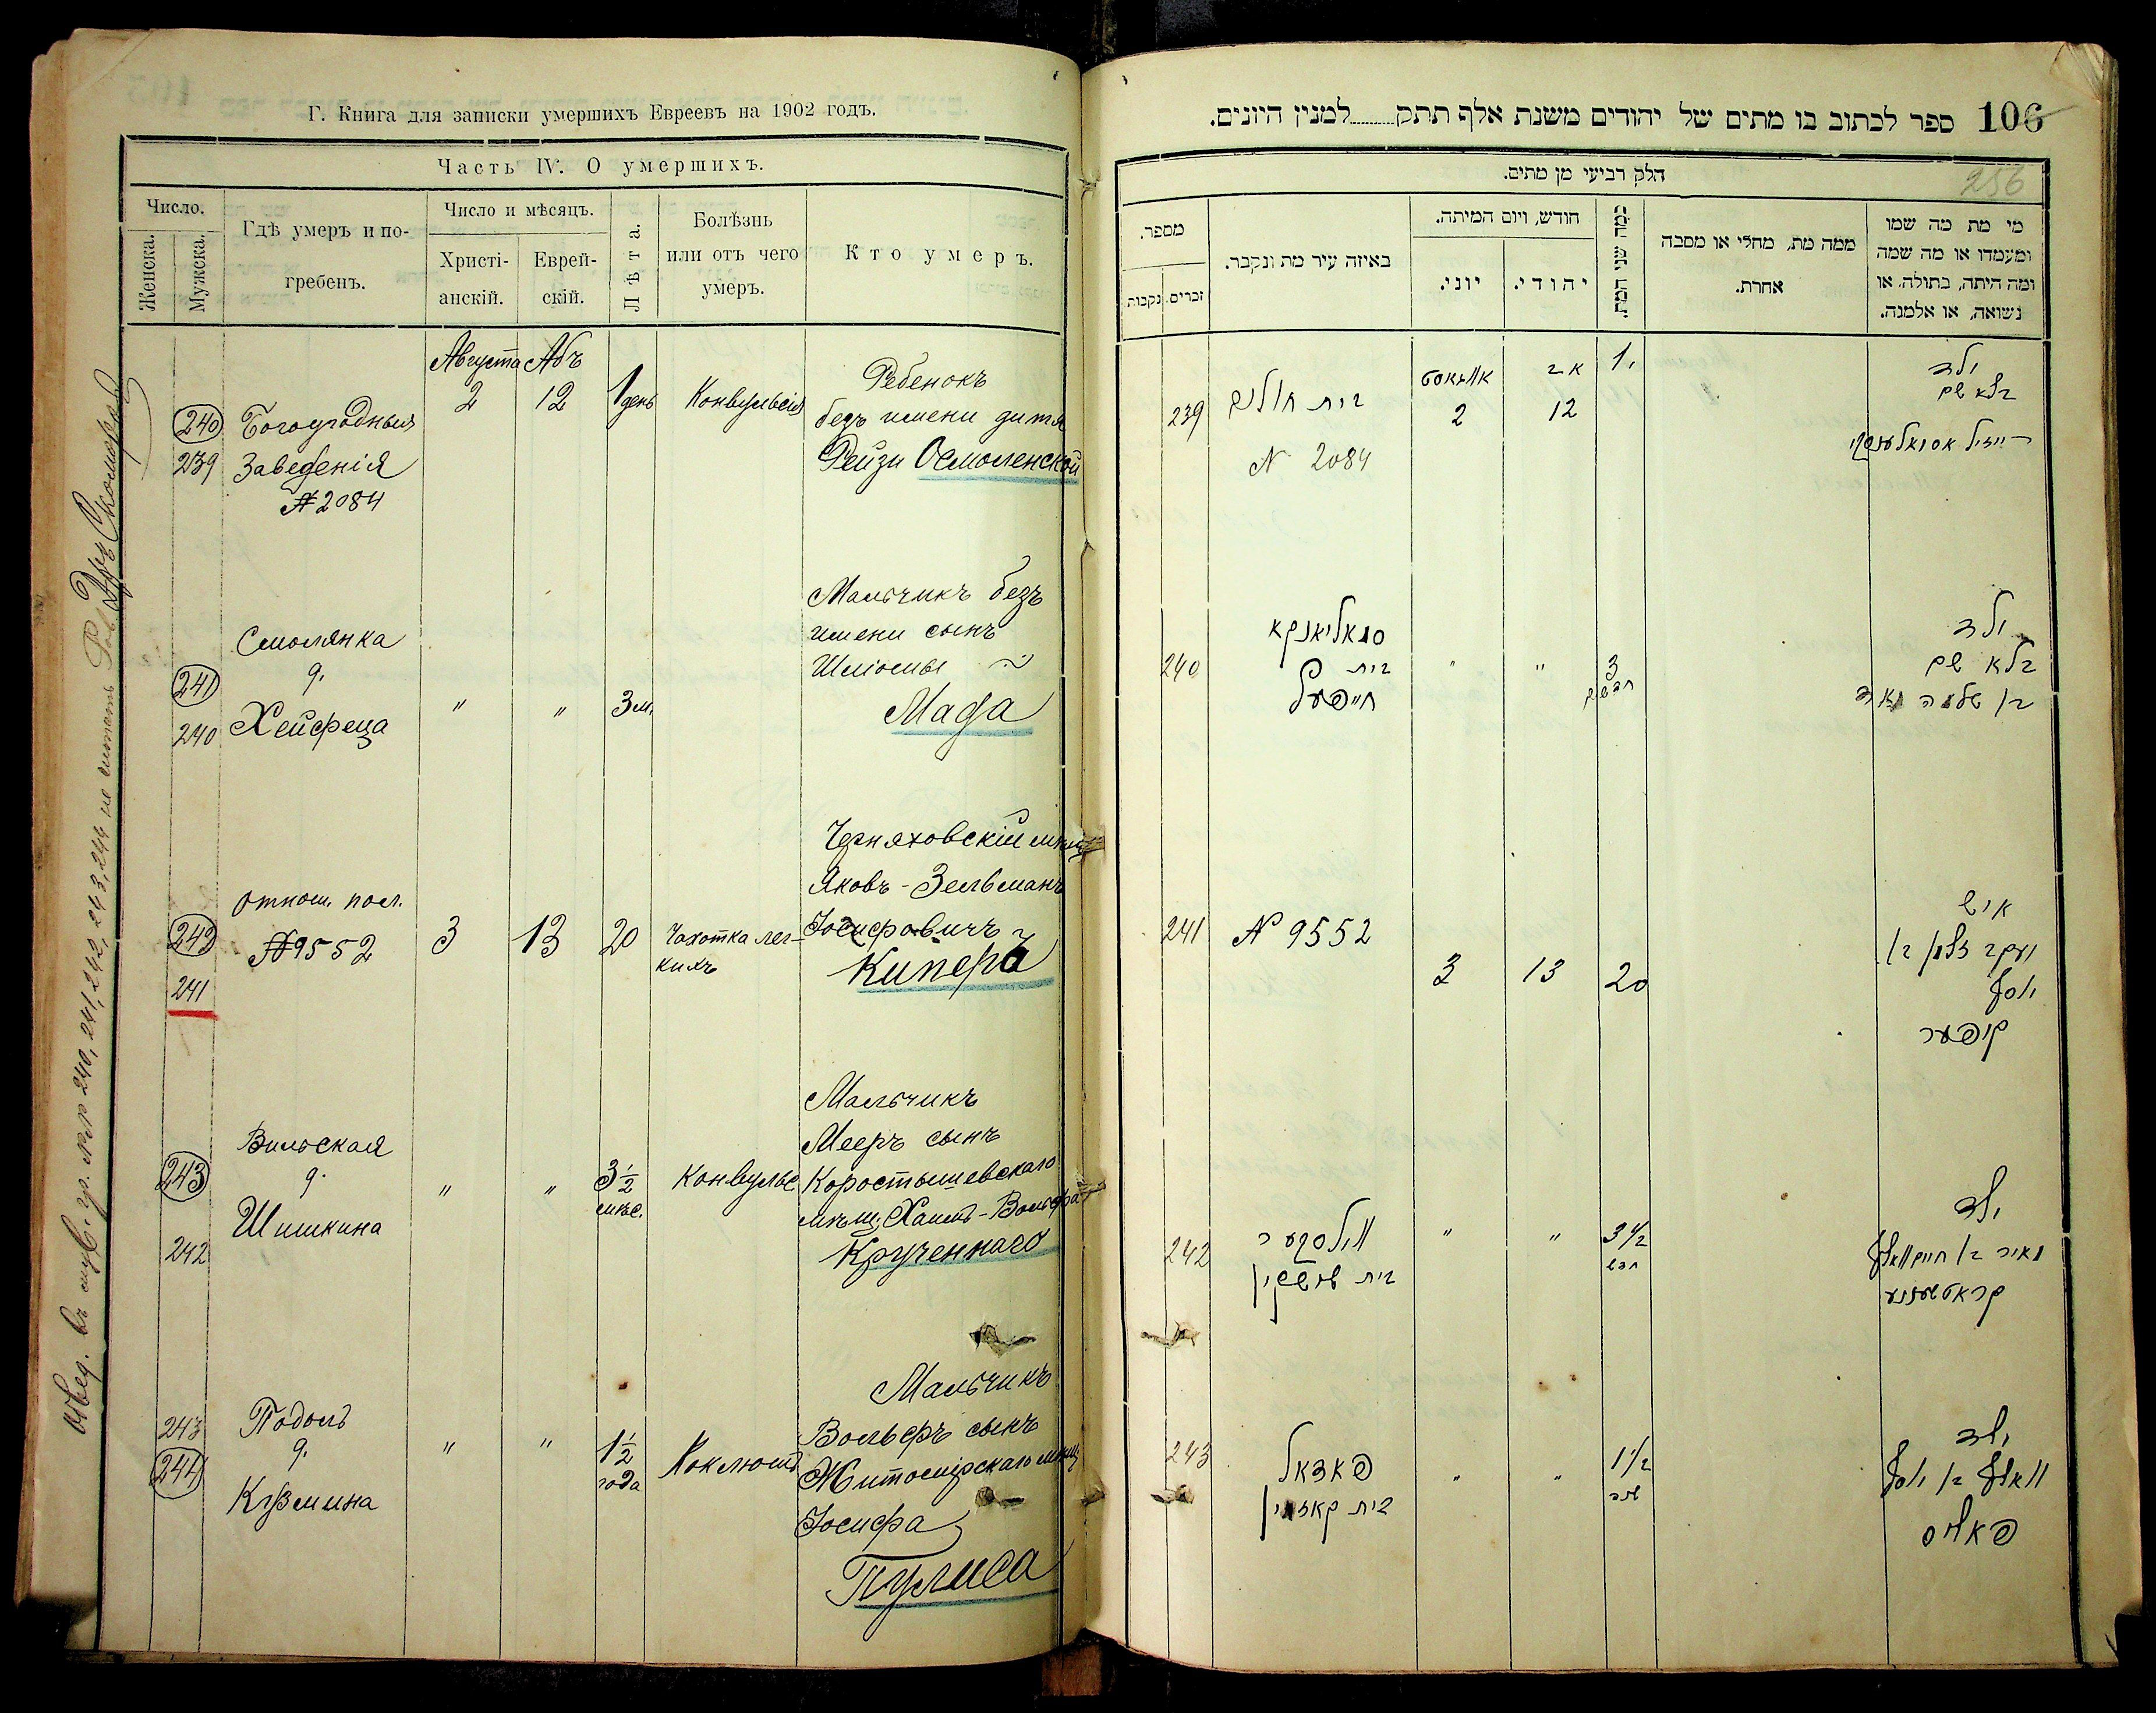 Г. Книга для записки умершихъ Евреевъ на 1902 годъ.
Часть IV. О умершихъ.
Число.
Женска.
Мужска.
Гдѣ умеръ и по-
гребенъ.
Число и мѣсяцъ.
Христі-
анскій.
Еврей-
скій.
Лѣта.
Болѣзнь
или отъ чего
умеръ.
Кто умеръ.
Августа Абъ
240
239
Богоугодныя
Заведенія
№ 2084
2
12
1 день
Конвульсія
Ребенокъ
безъ имени дитя
Рейзи Осмоленской
241
240
Смолянка
д.
Хейфеца
"
"
3 м.
Мальчикъ безъ
имени сынъ
Шліомы
Мада
242
241
отнош. пол.
№ 9552
3
13
20
Чахотка лег-
кихъ
Черняховскій мѣщ.
Яковъ-Зельманъ
Іосифовичъ
Киперъ
243
242
Вильская
д.
Шишкина
"
"
3½
мѣс.
Конвульс.
Мальчикъ
Мееръ сынъ
Коростышевскаго
мѣщ. Хаимъ-Вольфа
Крученнаго
243
244
Подолъ
д.
Кузмина
"
"
1½
года
Коклюшъ
Мальчикъ
Вольфъ сынъ
Житомірскаго мѣщ.
Іосифа
Пулиса
240, 241, 242, 243, 244 не имѣетъ Рав.
106 ספר לכתוב בו מתים של יהודים משנת אלף תתק........למנין היונים.
256
חלק רביעי מן מתים.
מספר.
זכרים.
נקבות
באיזה עיר מת ונקבר.
חודש, ויום המיתה.
יוני.
יהודי.
כמה שני המת.
ממה מת, מחלי או מסבה
אחרת.
מי מת מה שמו
ומעמדו או מה שמה
ומה היתה, בתולה, או
נשואה, או אלמנה.
239
בית חולים
N 2084
אויגוסט
2
אב
12
1
ילד
בלא שם
רייזיל אסמאלענסקי
240
סמאליאנקא
בית
חייפעץ
"
"
3
חדשים
ילד
בלא שם
בן שלמה מאד
241
N 9552
3
13
20
איש
יעקב זלמן בן
יוסף
קיפער
242
ווילסקער
בית שישקין
"
"
3½
חדש
ילד
מאיר בן חיים וואלף
קראטשענע
243
פאדאל
בית קאזמין
"
"
1½
שנה
ילד
וואלף בן יוסף
פאליס